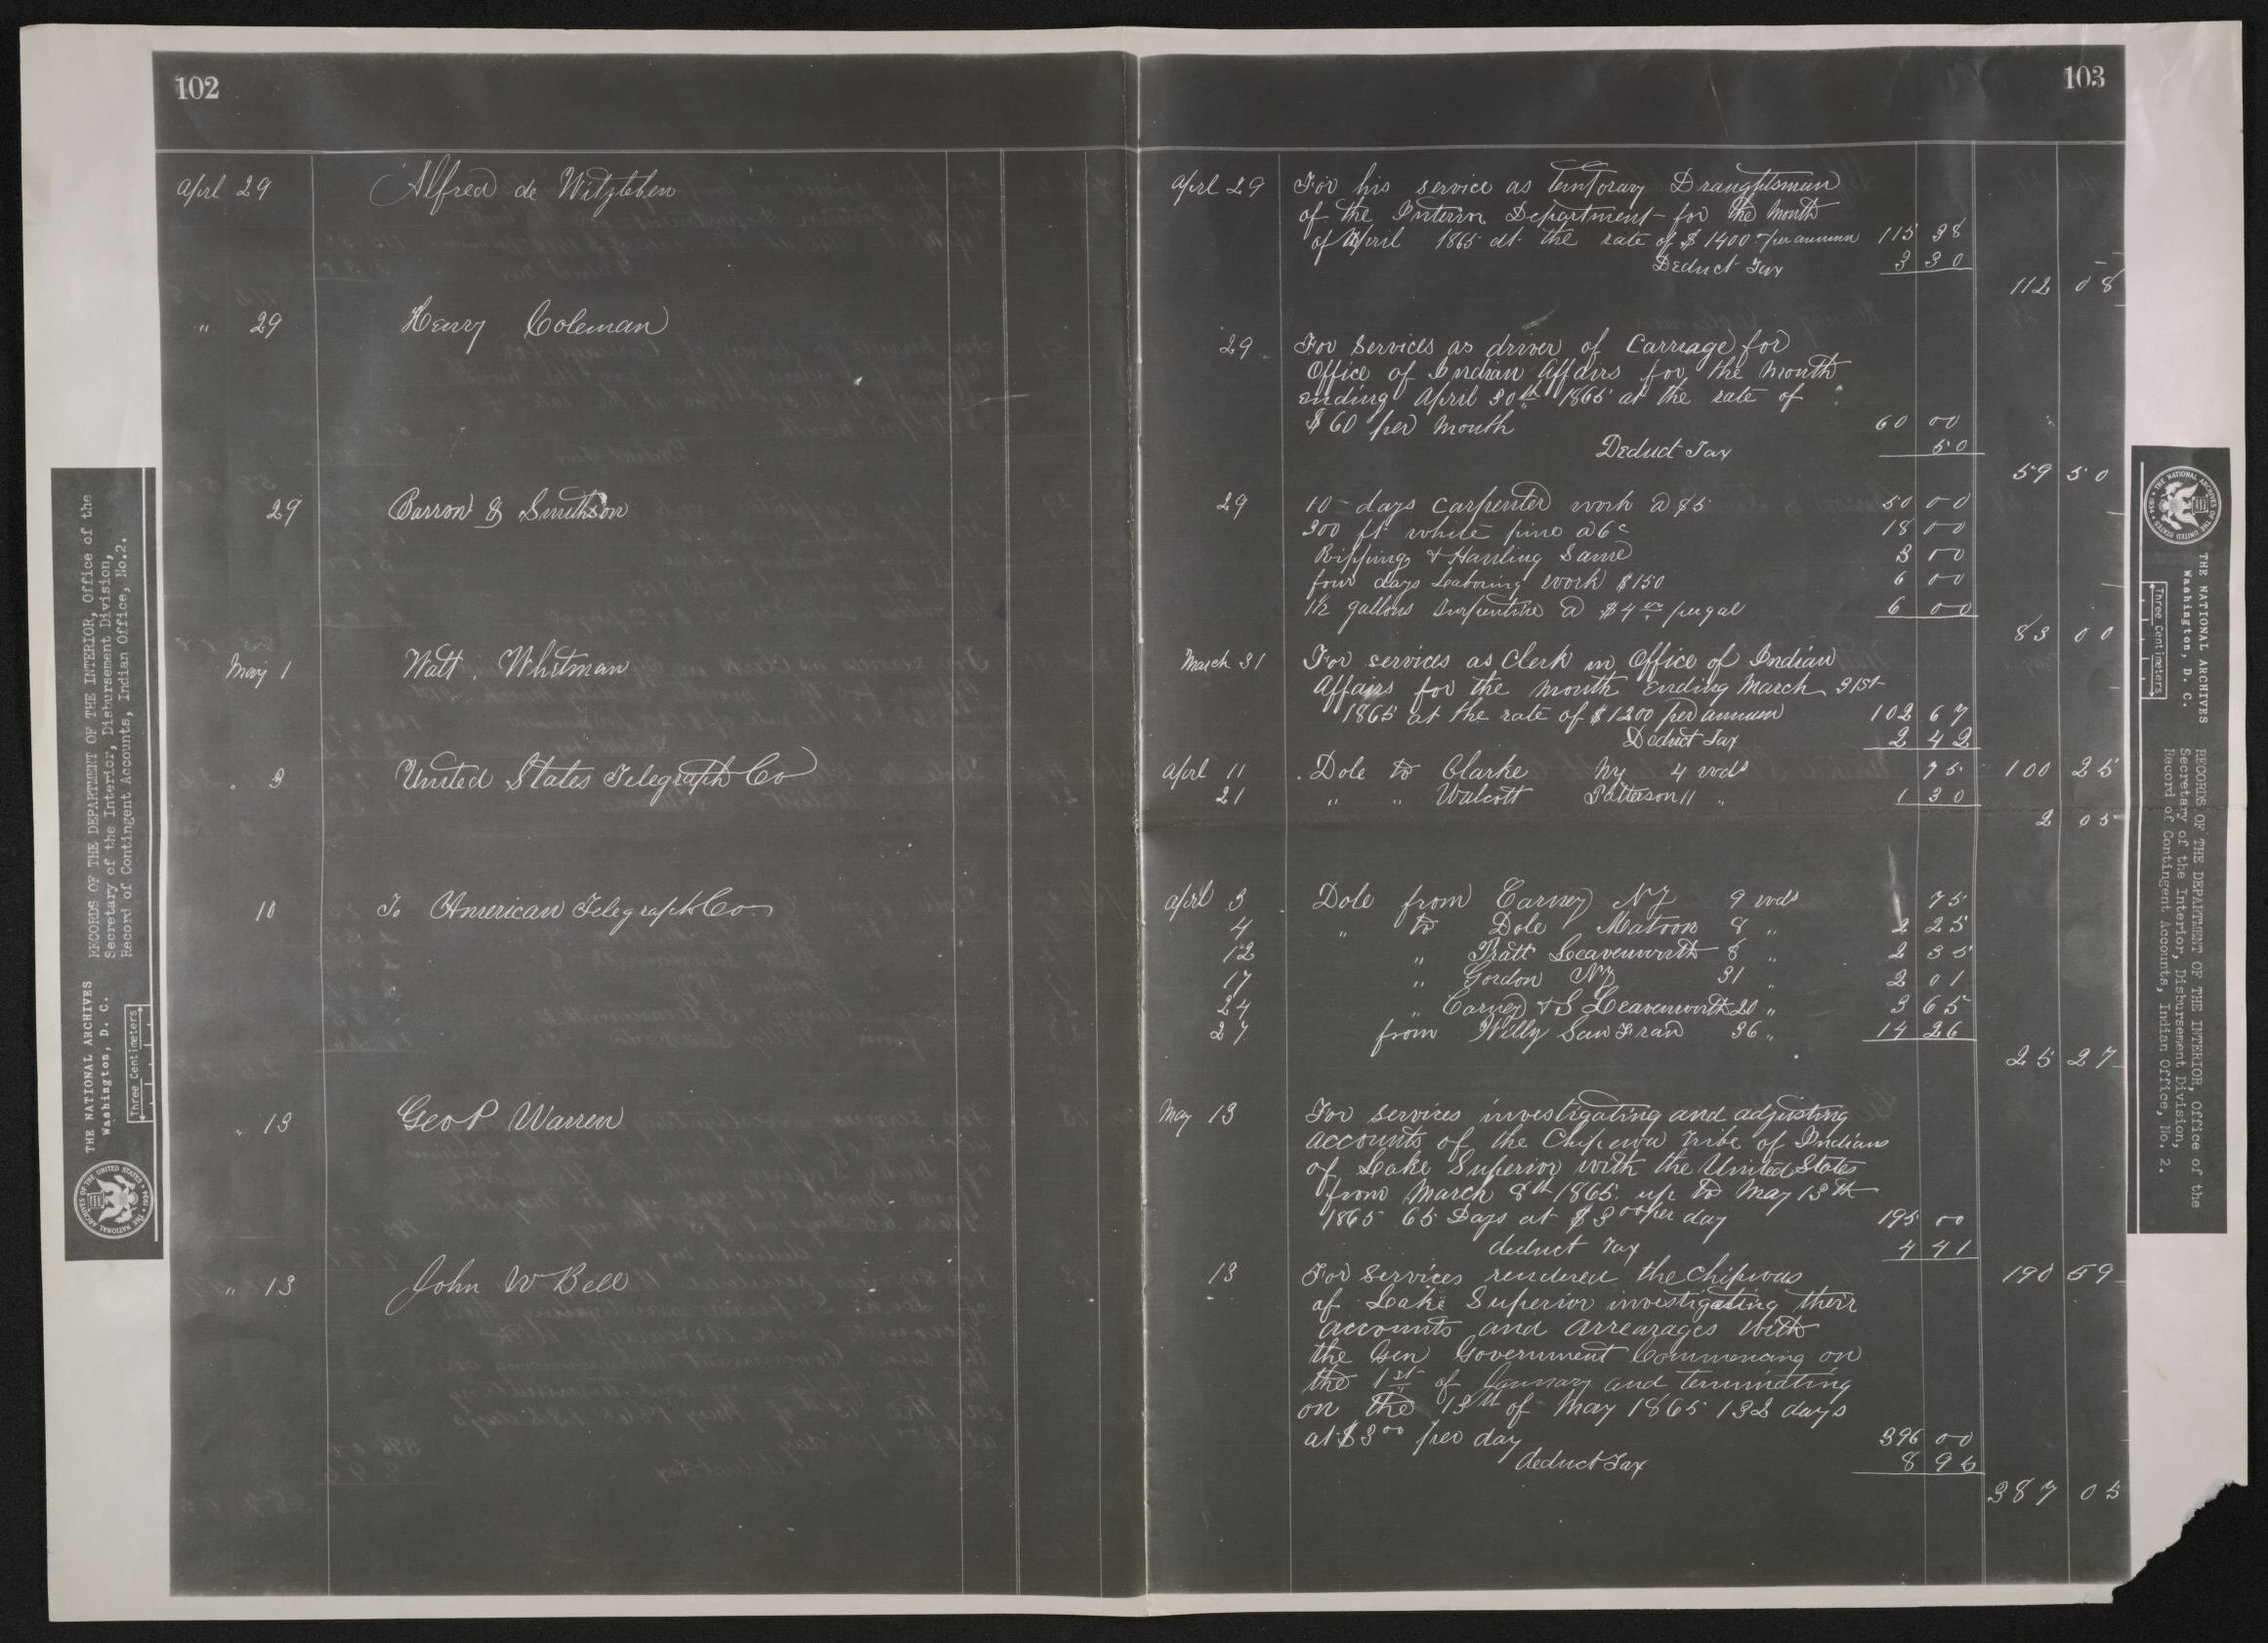 102
April 29 Alfred de Witzleben
" 29 Henry Coleman
29 Barron & Smithson
May 1 Walt. Whitman
" 3 United States Telegraph Co
10 To American Telegraph Co
" 13 Geo P Warren
" 13 John W Bell
103
April 29 For his service as temporary Draughtsman
of the Interior Department for the month
of April 1865 at the rate of $1400 per annum 115 38
Deduct Tax 3 30
112 08
29 For services as driver of Carriage for
Office of Indian Affairs for the month
ending April 30th 1865 at the rate of
$60 per month 60 00
Deduct Tax 50
59 50
29 10 days Carpenter work @ $5 50 00
300 ft white pine @ 6c 18 00
Ripping & Hauling Same 3 00
four days Laboring work $150 6 00
1½ gallons turpentine @ $4 00 per gal 6 00
83 00
March 31 For services as Clerk in Office of Indian
Affairs for the month ending March 31st
1865 at the rate of $1200 per annum 102 67
Deduct Tax 2 42
100 25
April 11 Dole to Clarke NY 4 wds 75
21 " " Walcott Patterson 11 " 1 30
2 05
April 3 Dole from Carney NY 9 wds 75
4 " to Dole Matoon 8 " 2 25
12 " Pratt Leavenworth 8 " 2 35
17 " Gordon NY 31 " 2 01
24 " Carney & S Leavenworth 20 " 3 65
27 from Willy San Fran 36 " 14 26
25 27
May 13 For services investigating and adjusting
accounts of the Chipewa tribe of Indians
of Lake Superior with the United States
from March 8th 1865 up to May 13th
1865 65 Days at $3 00 per day 195 00
deduct Tax 4 41
190 59
13 For Services rendered the Chipwas
of Lake Superior investigating their
accounts and arrearages with
the Gen Government Commencing on
the 1st of January and terminating
on the 13th of May 1865 132 days
at $3 00 per day 396 00
deduct Tax 8 95
387 05
THE NATIONAL ARCHIVES
Washington, D. C.
Three Centimeters
RECORDS OF THE DEPARTMENT OF THE INTERIOR, Office of the
Secretary of the Interior, Disbursement Division,
Record of Contingent Accounts, Indian Office, No.2.
THE NATIONAL ARCHIVES
Washington, D. C.
Three Centimeters
RECORDS OF THE DEPARTMENT OF THE INTERIOR, Office of the
Secretary of the Interior, Disbursement Division,
Record of Contingent Accounts, Indian Office, No. 2.